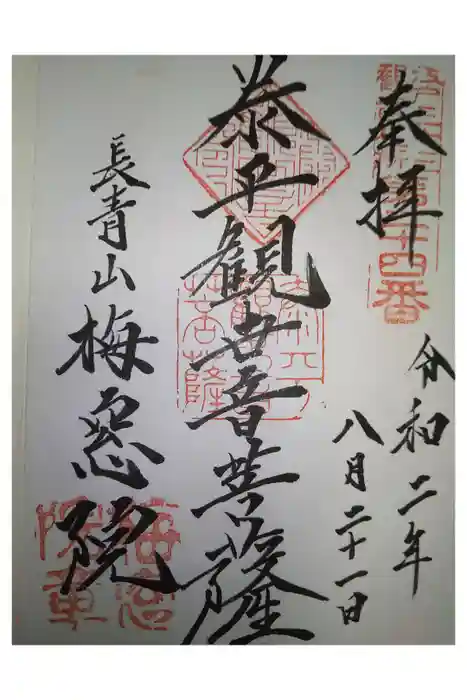 奉拝
令和二年
八月二十一日
泰平観世音菩薩
長青山梅窓院